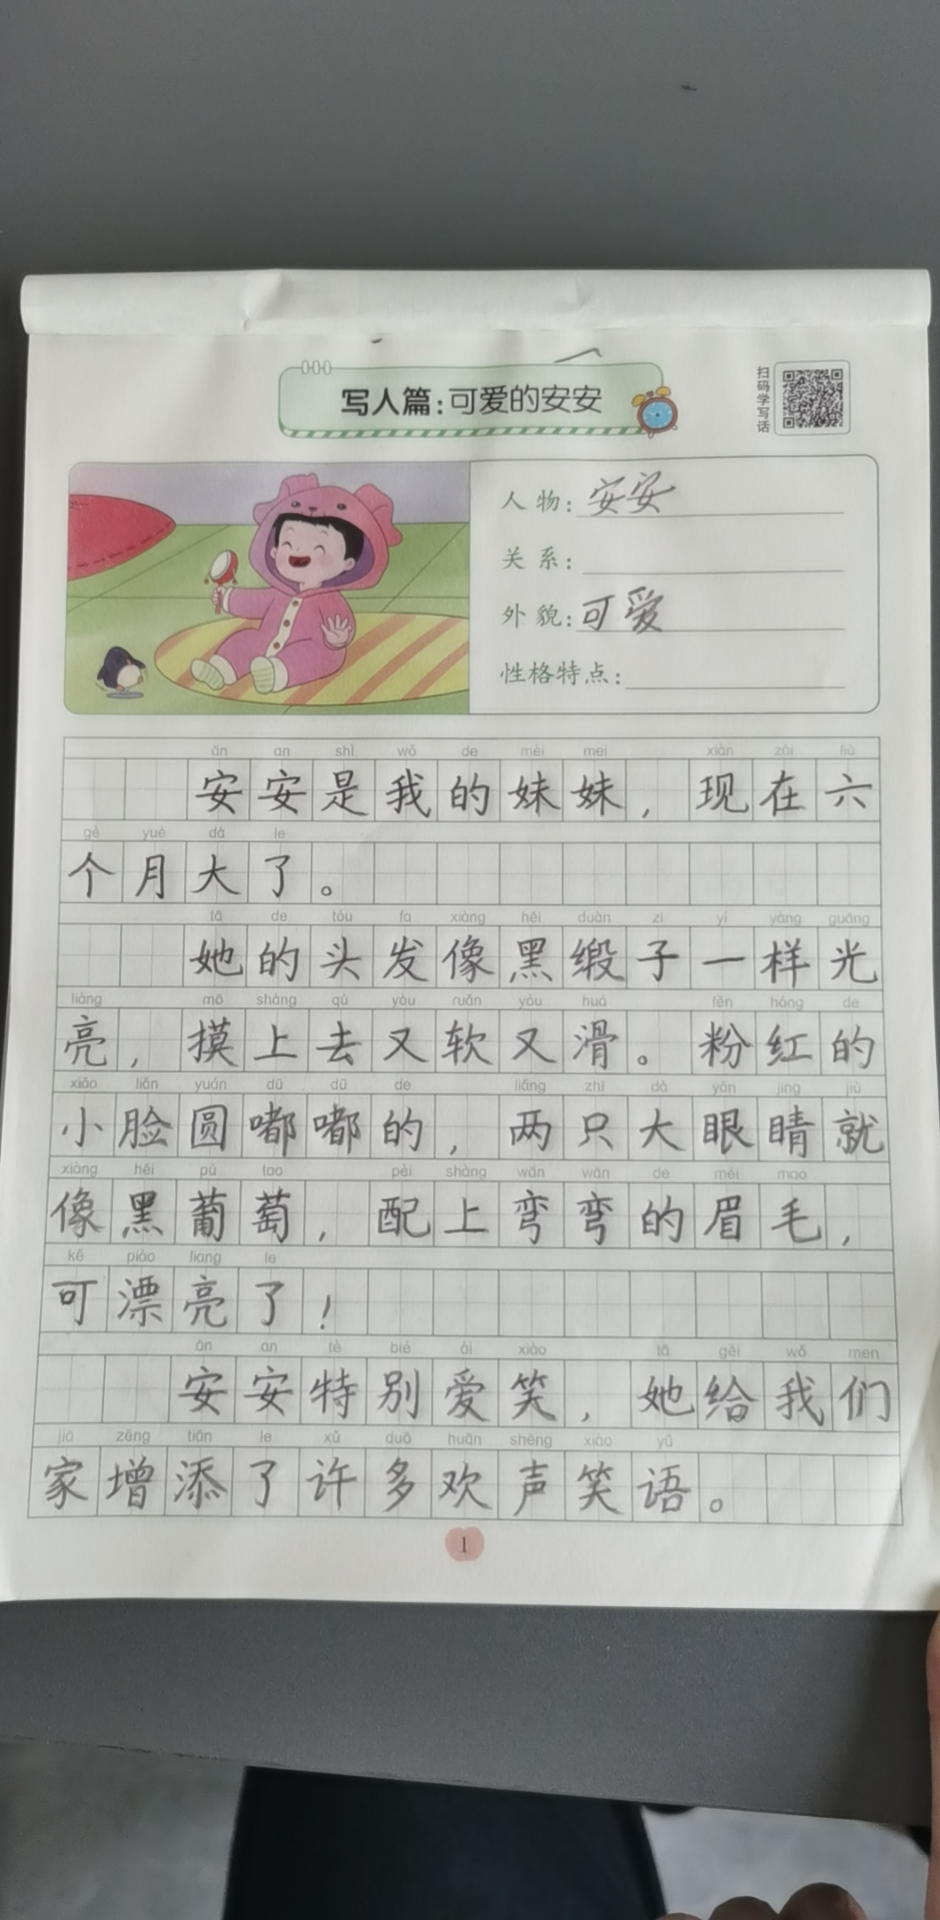 写人篇:可爱的安安
扫码学写话
人物:安安
关系:
外貌:可爱
性格特点:
ān an shì wǒ de mèi mei xiàn zài liù
安安是我的妹妹，现在六
gè yuè dà le
个月大了。
tā de tóu fa xiàng hēi duàn zi yí yàng guāng
她的头发像黑缎子一样光
liàng mō shàng qù yòu ruǎn yòu huá fěn hóng de
亮，摸上去又软又滑。粉红的
xiǎo liǎn yuán dū dū de liǎng zhī dà yǎn jing jiù
小脸圆嘟嘟的，两只大眼睛就
xiàng hēi pú tao pèi shàng wān wān de méi mao
像黑葡萄，配上弯弯的眉毛，
kě piào liang le
可漂亮了！
ān an tè bié ài xiào tā gěi wǒ men
安安特别爱笑，她给我们
jiā zēng tiān le xǔ duō huān shēng xiào yǔ
家增添了许多欢声笑语。
1